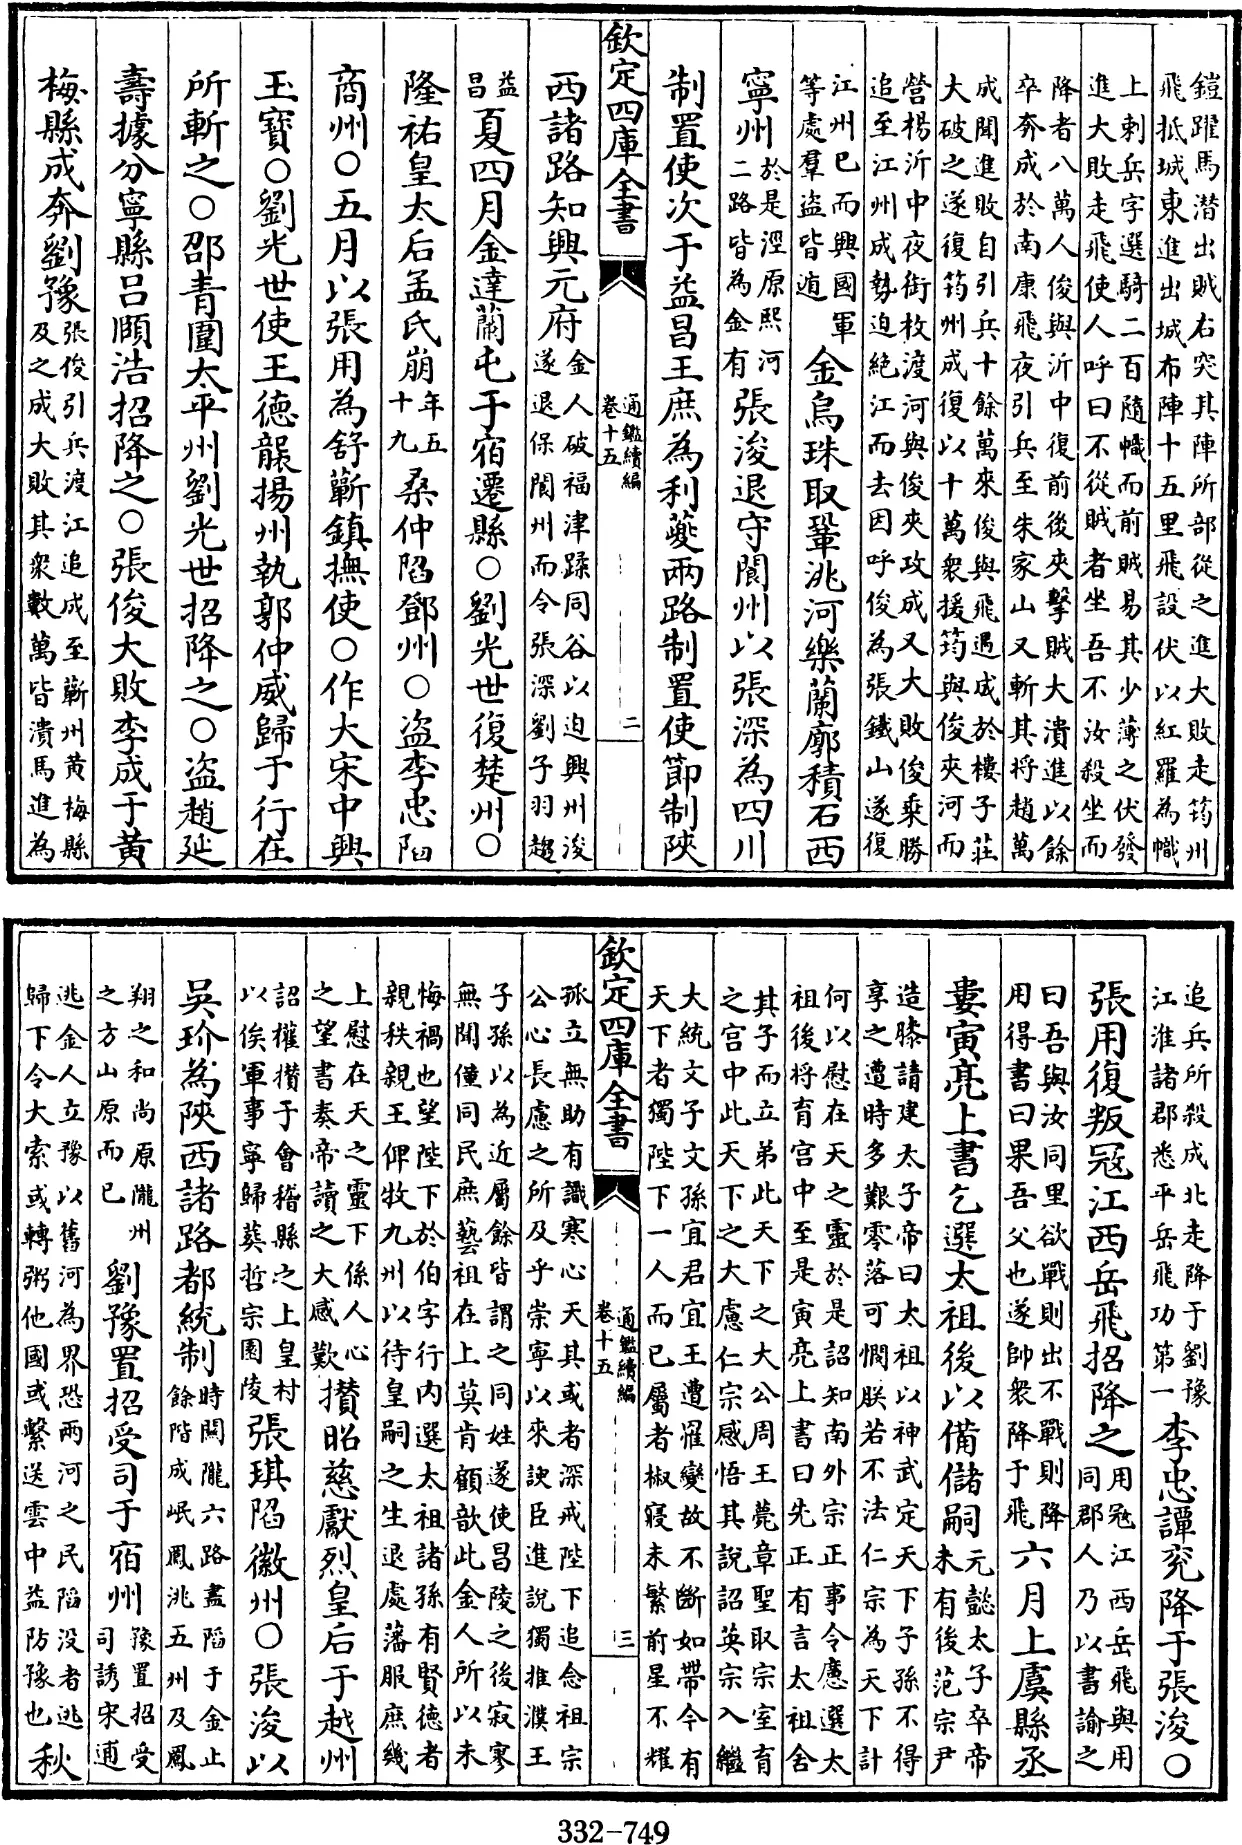 鎧躍馬潜出賊右突其陣所部從之進大敗走筠州
飛抵城東進出城布陣十五里飛設伏以紅羅為幟
上刺岳字選騎二百隨幟而前賊易其少薄之伏發
進大敗走飛使人呼曰不從賊者坐吾不汝殺坐而
降者八萬人俊與沂中復前後夾擊賊大潰進以餘
卒奔成於南康飛夜引兵至朱家山又斬其将趙萬
成聞進敗自引兵十餘萬來俊與飛遇成於樓子莊
大破之遂復筠州成復以十萬衆援筠與俊夾河而
營楊沂中夜銜枚渡河與俊夾攻成又大敗俊乘勝
追至江州成勢迫絕江而去因呼俊為張鐵山遂復
江州已而興國軍等處羣盜皆遁金烏珠取鞏洮河樂蘭廓積石西
寧州於是涇原熙河二路皆為金有張浚退守閬州以張深為四川
制置使次于益昌王庶為利夔兩路制置使節制陝
欽定四庫全書
通鑑續編
卷十五
二
西諸路知興元府金人破福津蹂同谷以迫興州浚遂退保閬州而令張深劉子羽趨
益昌夏四月金達蘭屯于宿遷縣○劉光世復楚州○
隆祐皇太后孟氏崩年五十九桑仲陷鄧州○盜李忠陷
商州○五月以張用為舒蘄鎮撫使○作大宋中興
玉寶○劉光世使王德襲揚州執郭仲威歸于行在
所斬之○邵青圍太平州劉光世招降之○盜趙延
壽據分寧縣呂頤浩招降之○張俊大敗李成于黃
梅縣成奔劉豫張俊引兵渡江追成至蘄州黃梅縣及之成大敗其衆數萬皆潰馬進為
追兵所殺成北走降于劉豫江淮諸郡悉平岳飛功第一李忠譚兖降于張浚○
張用復叛冦江西岳飛招降之用冦江西岳飛與用同郡人乃以書諭之
曰吾與汝同里欲戰則出不戰則降用得書曰果吾父也遂帥衆降于飛六月上虞縣丞
婁寅亮上書乞選太祖後以備儲嗣元懿太子卒帝未有後范宗尹
造膝請建太子帝曰太祖以神武定天下子孫不得
享之遭時多艱零落可憫朕若不法仁宗為天下計
何以慰在天之靈於是詔知南外宗正事令應選太
祖後将育宫中至是寅亮上書曰先正有言太祖舍
其子而立弟此天下之大公周王薨章聖取宗室育
之宫中此天下之大慮仁宗感悟其說詔英宗入繼
大統文子文孫宜君宜王遭罹變故不斷如帶今有
天下者獨陛下一人而已屬者椒寢未繁前星不耀
欽定四庫全書
通鑑續編
卷十五
三
孤立無助有識寒心天其或者深戒陛下追念祖宗
公心長慮之所及乎崇寧以來諛臣進說獨推濮王
子孫以為近屬餘皆謂之同姓遂使昌陵之後寂寥
無聞僅同民庶藝祖在上莫肯顧歆此金人所以未
悔禍也望陛下於伯字行内選太祖諸孫有賢德者
親秩親王俾牧九州以待皇嗣之生退處藩服庶幾
上慰在天之靈下係人心之望書奏帝讀之大感歎攢昭慈獻烈皇后于越州
詔權攢于會稽縣之上皇村以俟軍事寧歸葬哲宗園陵張琪陷徽州○張浚以
吳玠為陝西諸路都統制時關隴六路盡陷于金止餘階成岷鳳洮五州及鳳
翔之和尚原隴州之方山原而已劉豫置招受司于宿州豫置招受司誘宋逋
逃金人立豫以舊河為界恐兩河之民陷没者逃歸下令大索或轉粥他國或繫送雲中益防豫也秋
332-749